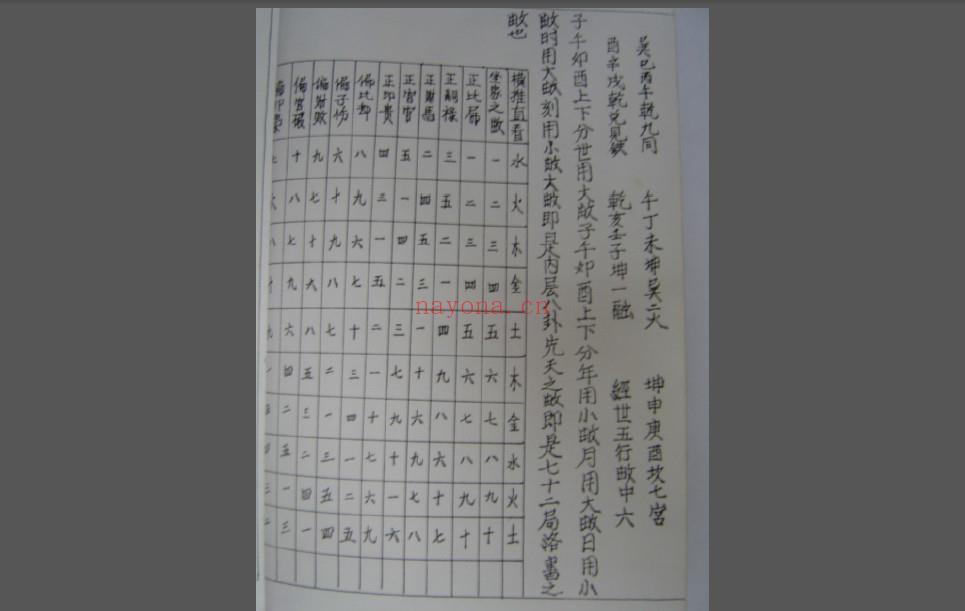 巽巳丙午乾九同 午丁未坤巽二火 坤申庚酉坎七宮
酉辛戌乾兌見鉞 乾亥壬子坤一融 經世五行敀中六
子午卯酉上下分世用大敀子午卯酉上下分年用小敀月用大敀日用小
敀时用大敀刻用小敀大敀即是内层八卦先天之敀即是七十二局洛書之
敀也
横推直看 水 火 木 金 土 木 金 水 火 土
坐家之敀 一 二 三 四 五 六 七 八 九 十
正比局 一 二 三 四 五 六 七 八 九 十
正嗣禄 三 五 二 一 四 九 八 六 十 七
正財馬 二 四 五 三 一 十 六 九 七 八
正官官 五 一 四 二 三 七 九 十 一 六
正印贵 四 三 一 五 二 一 十 七 六 九
偏比刼 八 九 六 七 十 三 四 一 二 五
偏子伤 六 十 九 八 七 二 一 三 五 四
偏財败 九 七 十 六 八 五 三 二 四 一
偏官破 十 八 七 九 六 四 二 五 一 三
nayona.cn